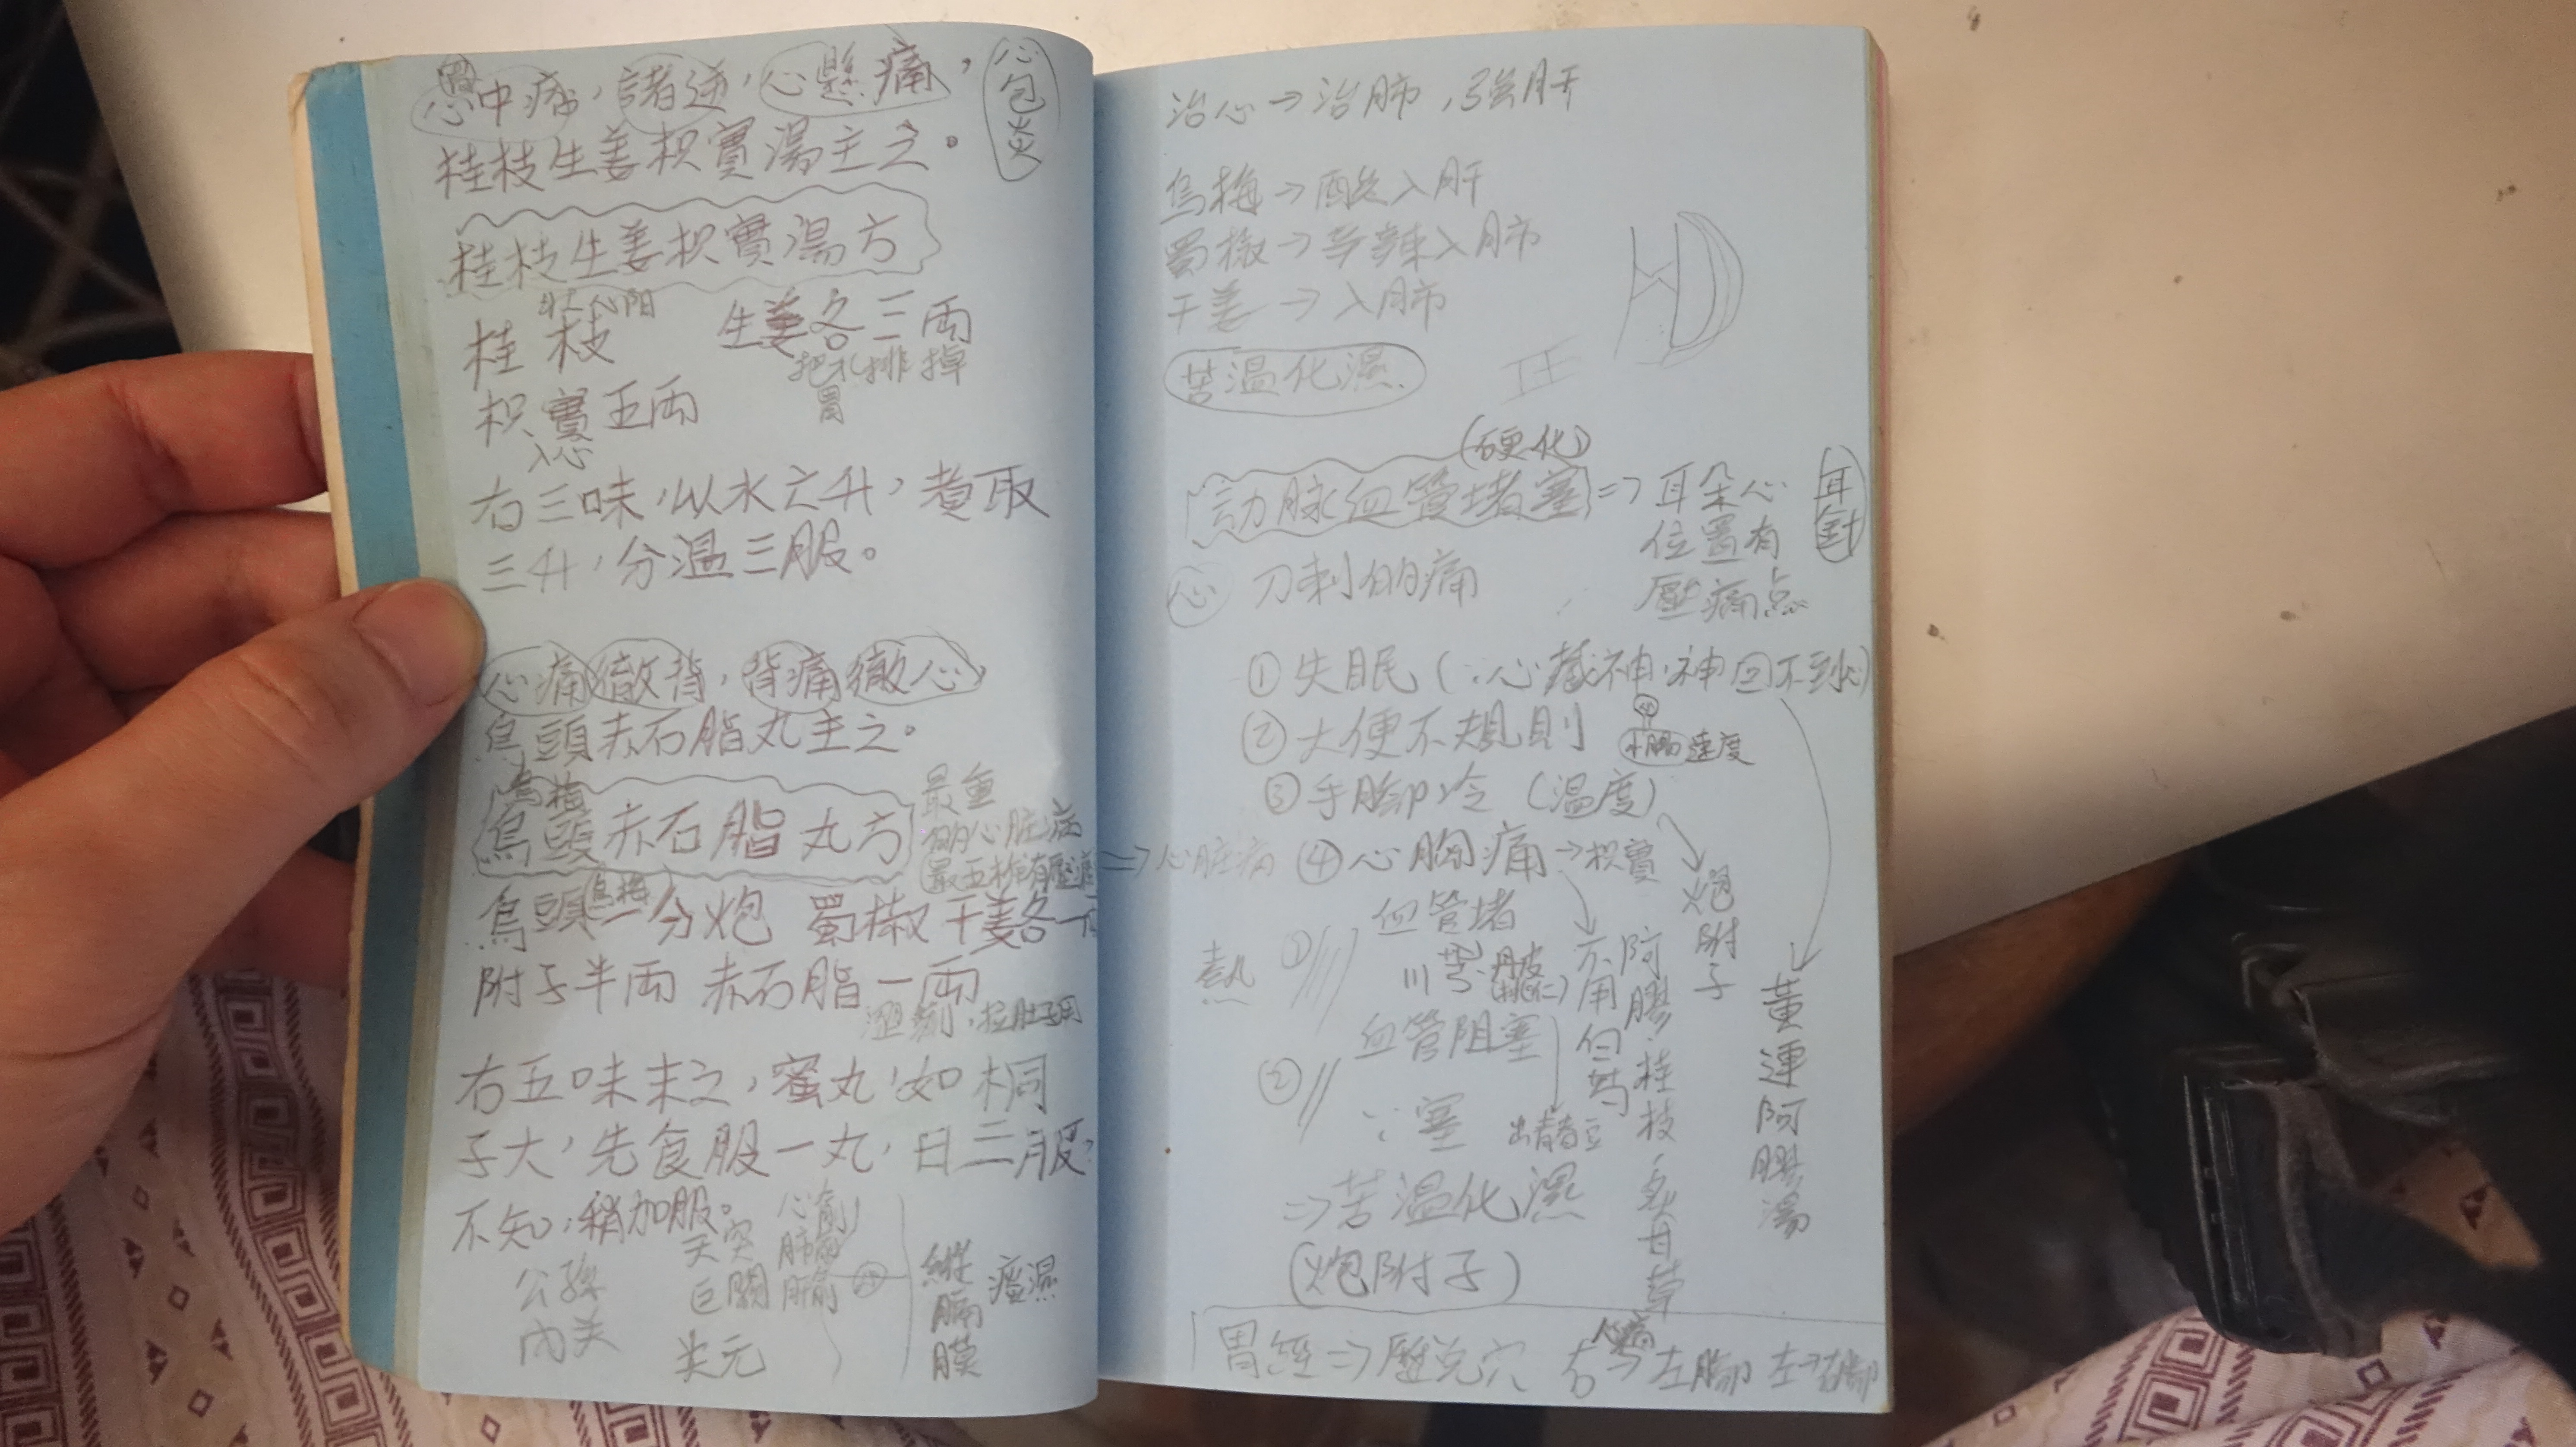 胃
心中痞，諸逆，心懸痛，
心包炎
桂枝生姜枳實湯主之。
桂枝生姜枳實湯方
壯心阳
桂枝 生姜各三兩
把水排掉
胃
枳實五兩
入心
右三味，以水六升，煮取
三升，分温三服。
心痛徹背，背痛徹心，
烏頭赤石脂丸主之。
烏梅
烏頭赤石脂丸方
最重
的心脏病
烏梅
烏頭一分炮 蜀椒 干姜各一兩
附子半兩 赤石脂一兩
澀劑，拉肚子用
右五味末之，蜜丸，如桐
子大，先食服一丸，日三服，
不知，稍加服。
公孫
內关
天突
巨關
关元
心俞
肺俞
膈俞
縱
膈
膜
瘟濕
治心→治肺，强肝
烏梅→酸入肝
蜀椒→辛辣入肺
干姜→入肺
苦温化濕
(硬化)
動脉血管堵塞⇒耳朵心
位置有
壓痛点
耳針
心 刀刺的痛
① 失眠（∵心藏神，神回不到心）
② 大便不規則
小腸速度
③ 手脚冷（温度）
⇒心脏病 ④ 心胸痛→枳實
血管堵
熱 ①
川芎、丹皮
(桃仁)
不用白芍
阿膠、桂枝、炙甘草
炮附子
黃連阿膠湯
血管阻塞
② ∵塞
⇒苦温化濕
(炮附子)
胃經⇒厲兌穴
心痛
右→左脚 左→右脚